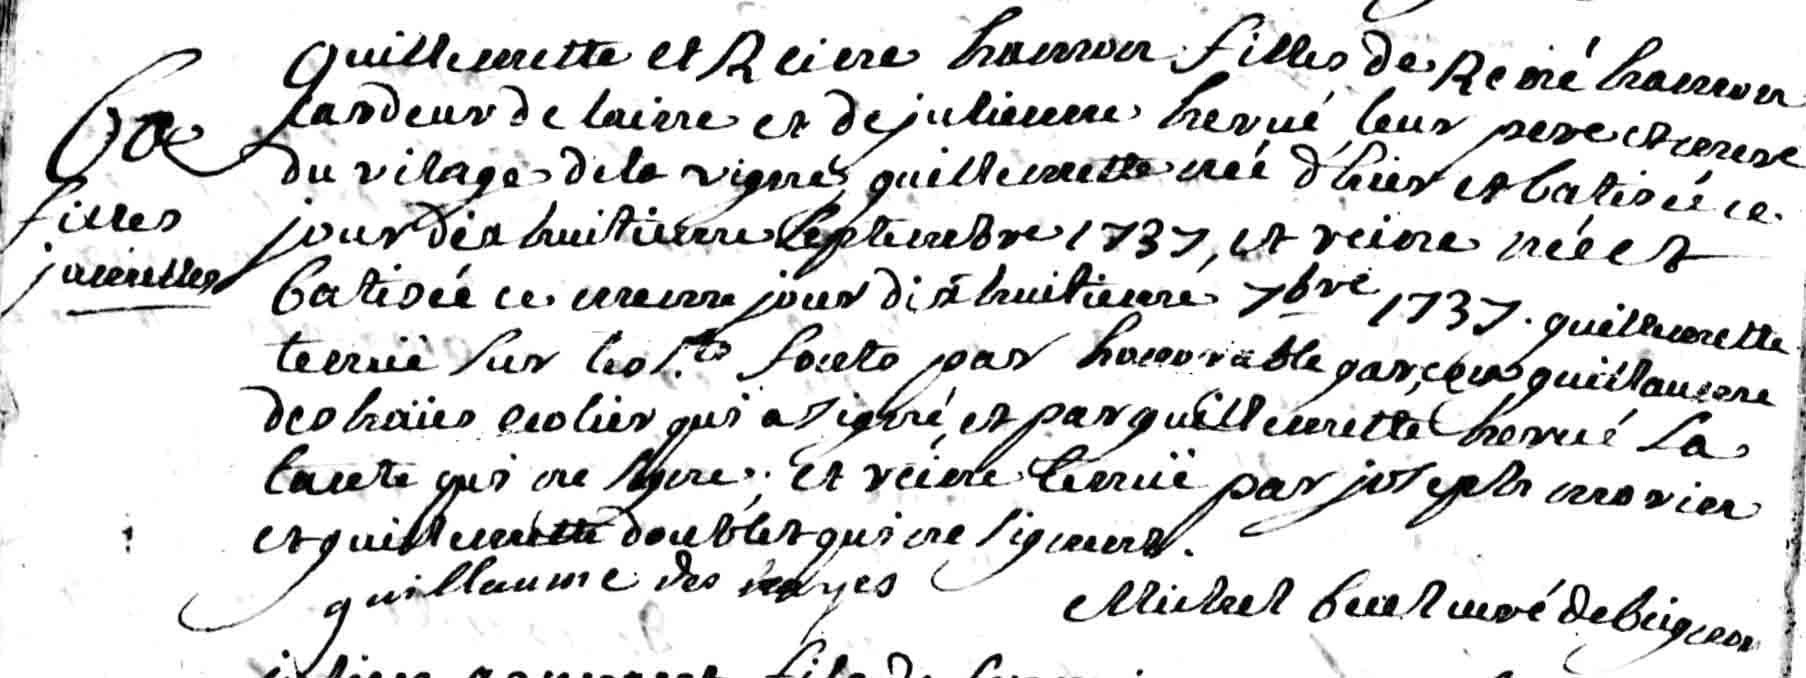 Guillemette et Reine hamon filles de René hamon
Bâ
cardeur de laine et de julienne hervé leur pere et mere
du vilage de la vigne, guillemette née d'hier et batisée ce
filles
jumelles
jour dix huitieme Septembre 1737, et reine née et
batisée ce meme jour dix huitieme 7bre 1737. guillemette
tenuë sur les Sts fonts par honorable garçon guillaume
des haïes ecolier qui a signé, et par guillemette hervé Sa
tante qui ne signe; et reine tenuë par joseph morin
et guillemette doublet qui ne signent.
guillaume des hayes
Michel curé de Beignon